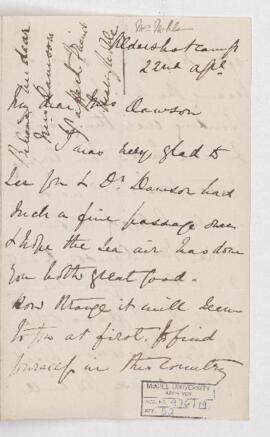 Mrs McLean
Aldershot Camp
22nd apl.
My dear Mrs Dawson
I was very glad to
see you & Dr Dawson had
such a fine passage over
& hope the sea air has done
you both great good.
How strange it will seem
to you at first to find
yourself in this Country
Believe me dear
Mrs Dawson
Yr affect friend
McGILL UNIVERSITY
ARCHIVES
ACC. NO. 976/19
REF. 52